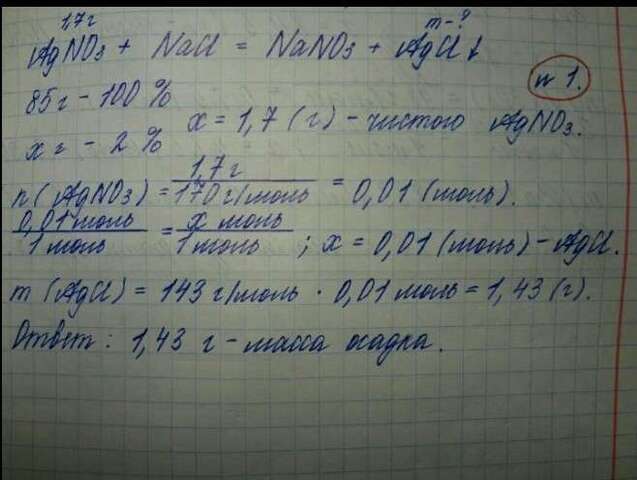 1,7г m-?
AgNO3 + NaCl = NaNO3 + AgCl↓
n 1.
85 г - 100 %
x г - 2 %
x = 1,7 (г) - чистого AgNO3.
n (AgNO3) = 1,7 г / 170 г/моль = 0,01 (моль).
0,01 моль / 1 моль = x моль / 1 моль ; x = 0,01 (моль) - AgCl.
m (AgCl) = 143 г/моль · 0,01 моль = 1,43 (г).
Ответ: 1,43 г - масса осадка.